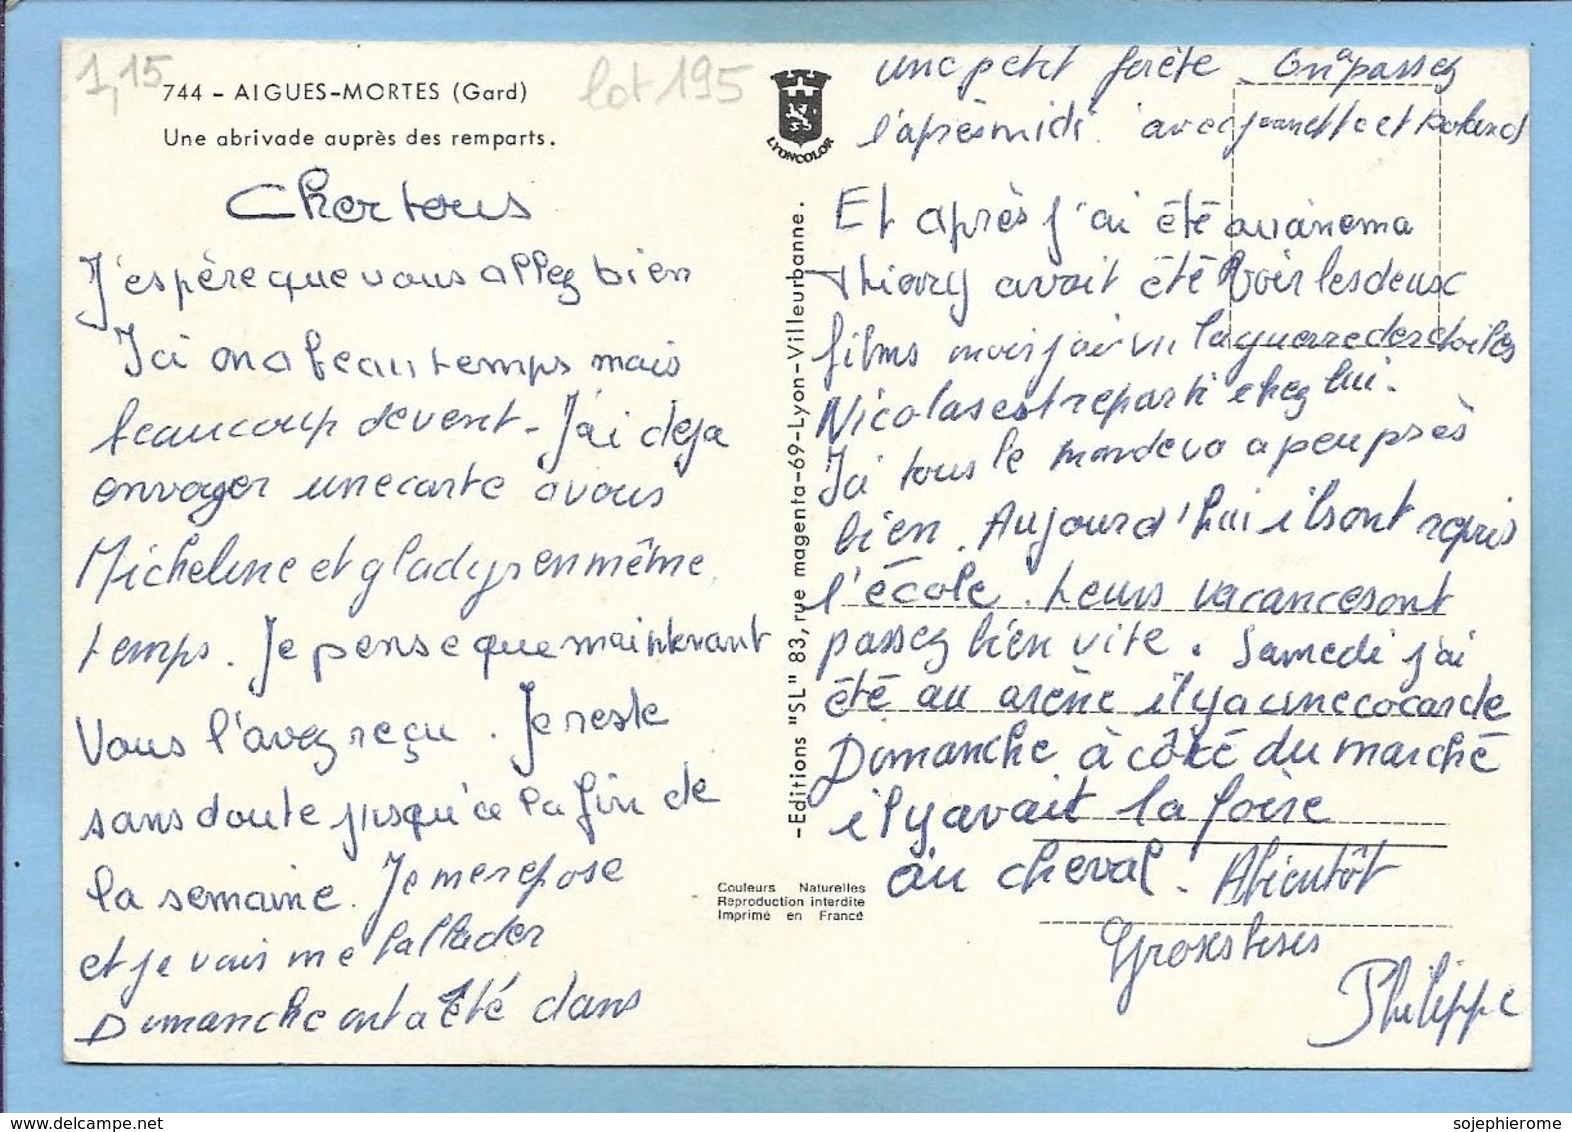 1,15
lot 195
744 - AIGUES-MORTES (Gard)
Une abrivade auprès des remparts.
LYONCOLOR
Cher tous
J'espère que vous allez bien
Ici on a beau temps mais
beaucoup de vent. J'ai deja
envoyer une carte a vous
Micheline et gladys en même
temps. Je pense que maintenant
Vous l'avez reçu. Je reste
sans doute jusqu'a la fin de
la semaine. Je me repose
et je vais me ballader
Dimanche ont a été dans
-Editions "SL" 83, rue magenta-69-Lyon-Villeurbanne.
Couleurs Naturelles
Reproduction interdite
Imprimé en France
une petit forête. On a passez
l'après midi avec jeanette et Roland
Et après j'ai été au cinema
Thierry avait été voir les deux
films mais j'ai vu la guerre des etoiles
Nicolas est reparti chez lui.
Ici tous le monde va a peu près
bien. Aujourd'hui ils ont repris
l'école. Leurs vacance sont
passez bien vite. Samedi j'ai
été au arène il y a une cocarde
Dimanche à côté du marché
il y avait la foire
au cheval. Abientôt
Gros bises
Philippe
sojephierome